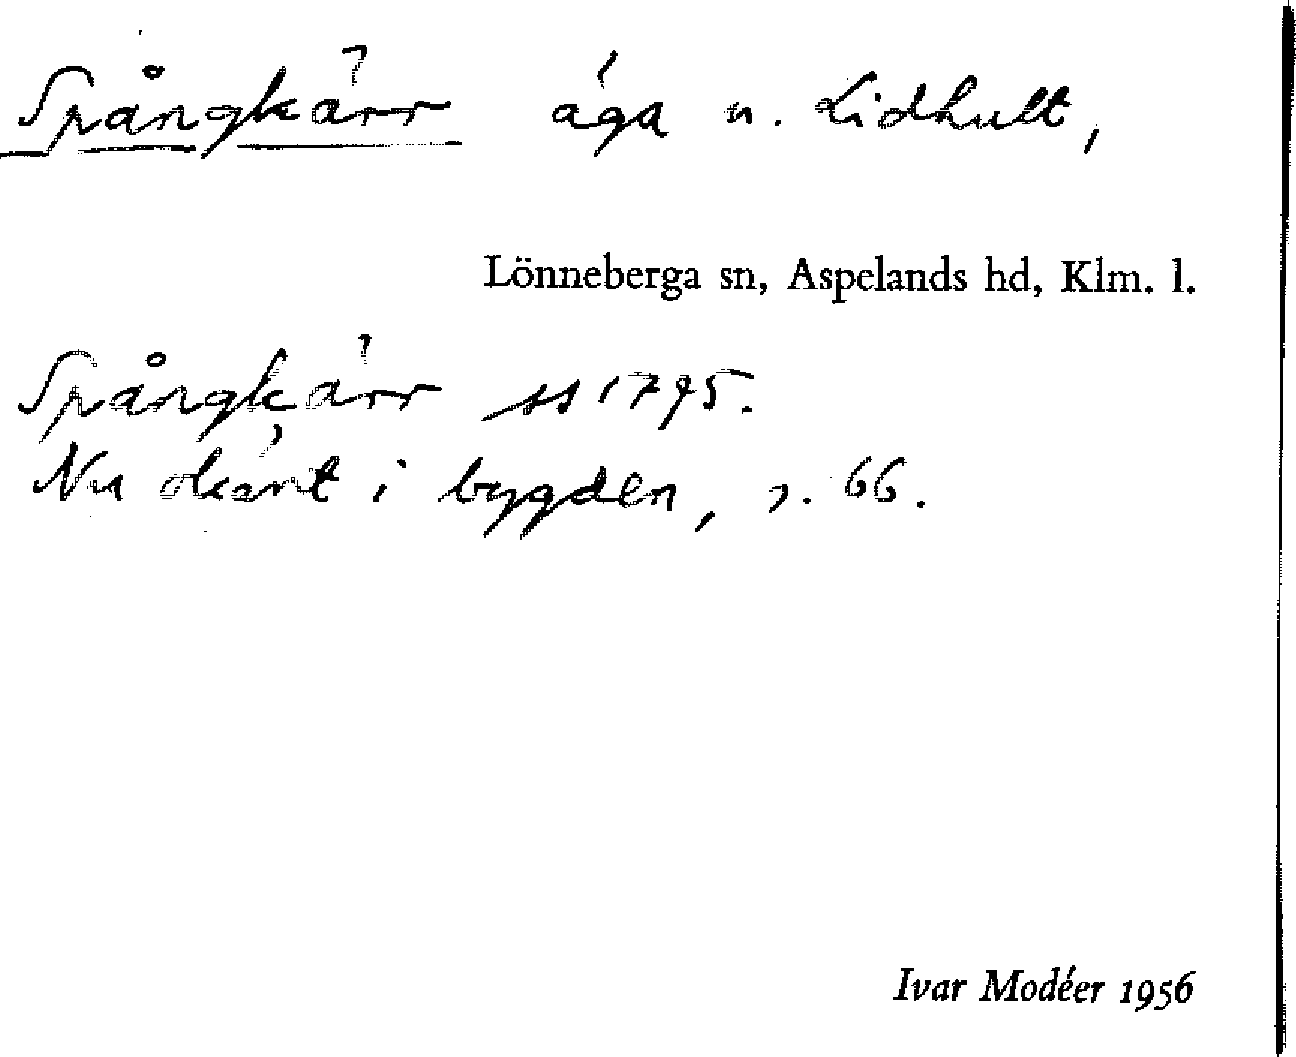 Spångkärr äga u. Lidhult,
Lönneberga sn, Aspelands hd, Klm. l.
Spångkärr ss 1795.
Nu okänt i bygden, s. 66.
Ivar Modéer 1956